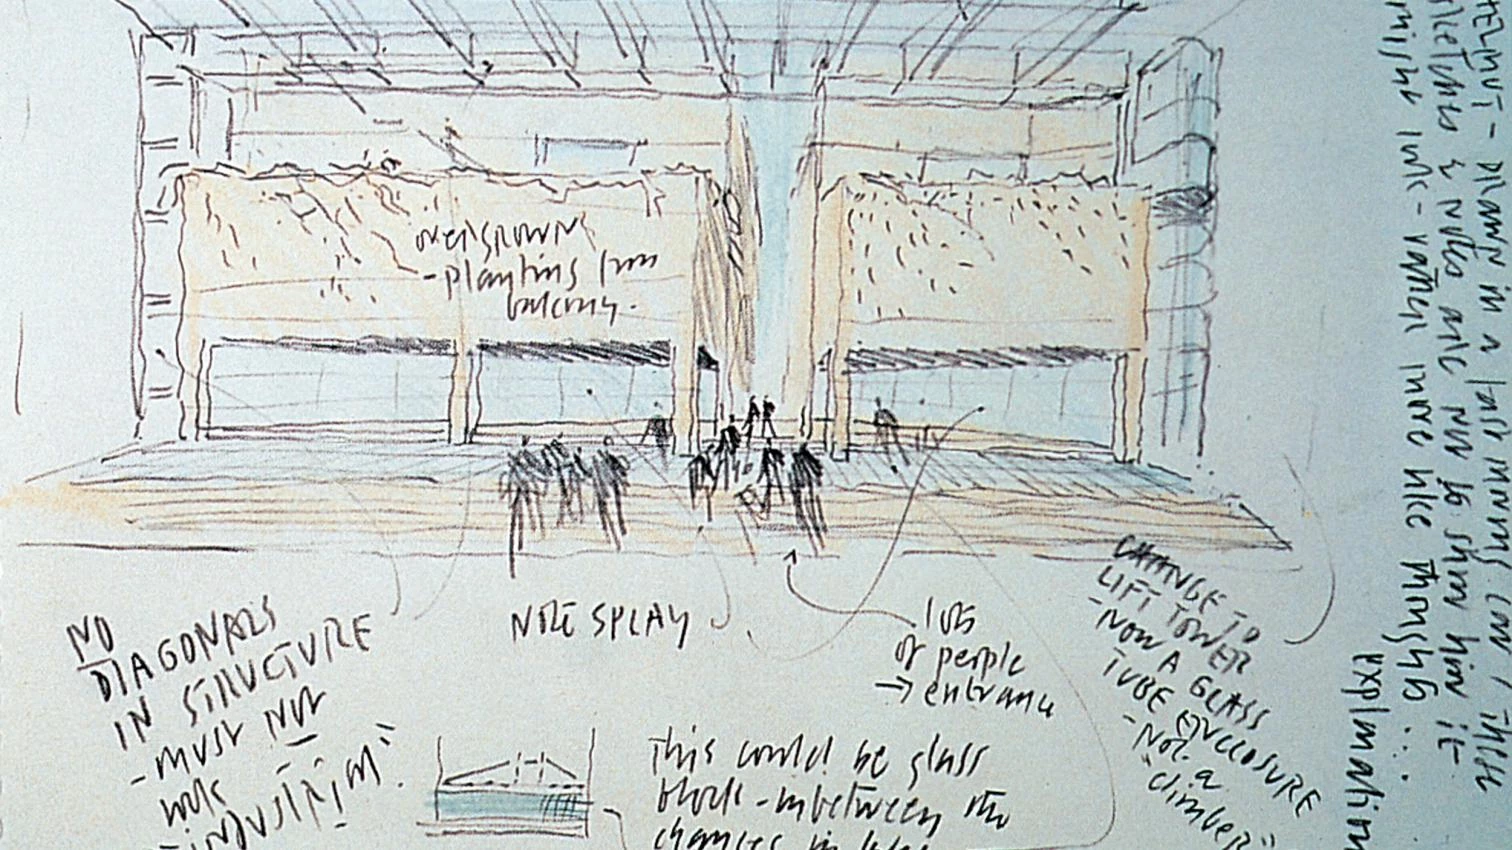 OVERGROWN
- planting from
balcony.
NO
DIAGONALS
IN STRUCTURE
- must NOT
look
"industrial".
NOTE SPLAY
lots
of people
→ entrance
CHANGE TO
LIFT TOWER
- NOW A GLASS
TUBE ENCLOSURE
- Not a
"climber"
This could be glass
block - inbetween the
changes in
- drawn in a
sketches & notes are not to show how it
might look - rather more like thoughts...
explanation